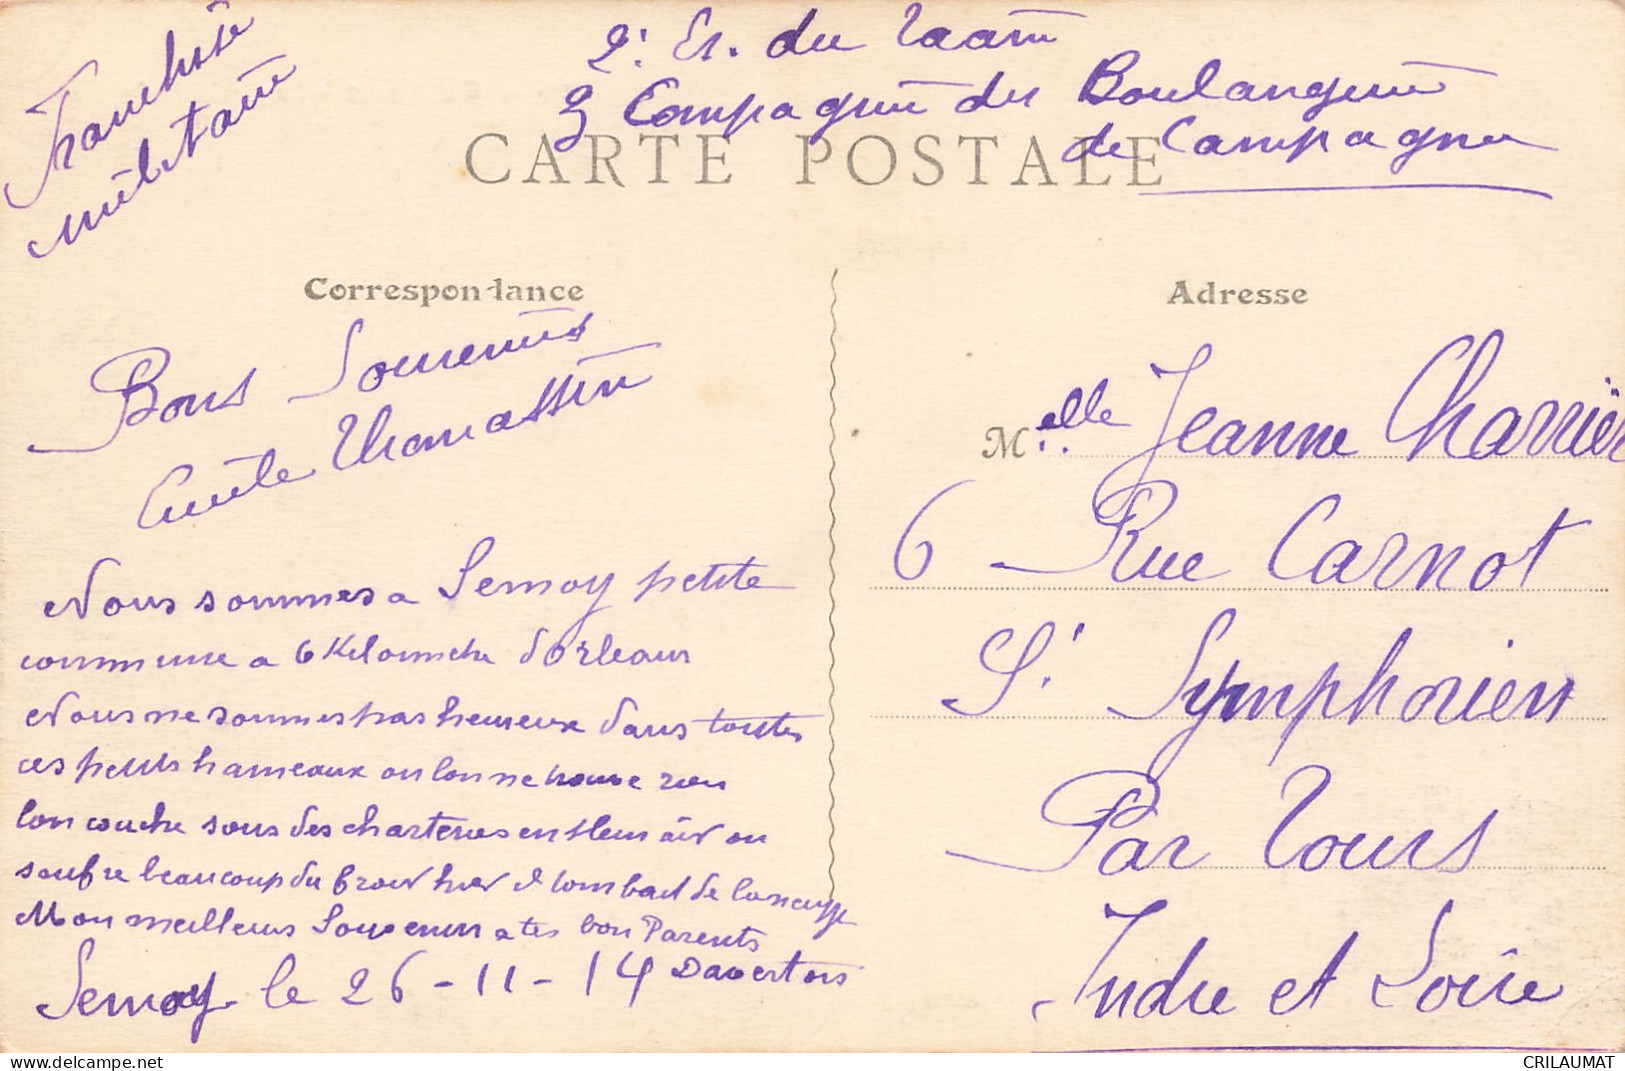 Franchise
militaire
2. Es. du Train
Compagnie des Boulangerie
de Campagne
CARTE POSTALE
Correspondance
Adresse
Bons Souvenirs
Emile Thomassin
Nous sommes a Semoy petite
commune a 6 Kilometre d'Orleans
Nous ne sommes pas heureux dans toutes
ces petits hameaux ou lon ne trouve rien
lon couche sous des charteries en plein air on
soufre beaucoup du froid hier il tombait de la neige
Mon meilleurs Souvenir a tes bon Parents
Semoy le 26-11-14
Melle Jeanne Charrier
6 Rue Carnot
St Symphorien
Par Tours
Indre et Loire
CRILAUMAT